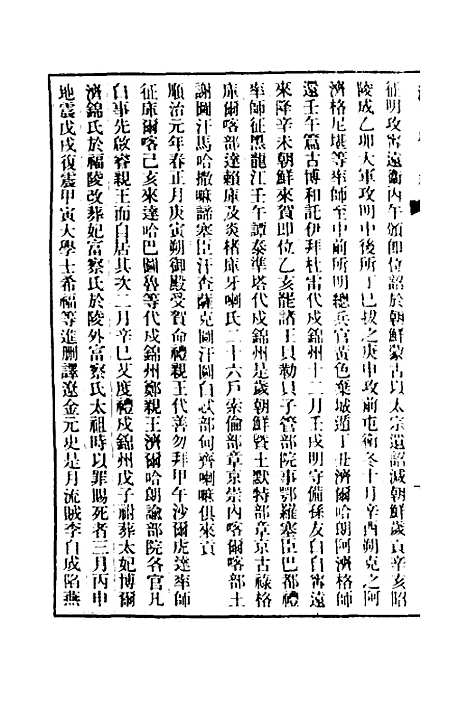 征明攻甯遠衞丙午頒卽位詔於朝鮮蒙古以太宗遺詔減朝鮮歲貢辛亥昭
陵成乙卯大軍攻明中後所丁巳拔之庚申攻前屯衞冬十月辛酉朔克之阿
濟格尼堪等率師至中前所明總兵官黃色棄城遁丁丑濟爾哈朗阿濟格師
還壬午篇古博和託伊拜杜雷代戍錦州十二月壬戌明守備孫友白自甯遠
來降辛未朝鮮來賀卽位乙亥罷諸王貝勒貝子管部院事鄂羅塞臣巴都禮
率師征黑龍江壬午譚泰準塔代戍錦州是歲朝鮮曁土默特部章京古祿格
庫爾喀部達賴庫及炎楮庫牙喇氏二十六戶索倫部章京崇內喀爾喀部土
謝圖汗馬哈撒嘛諦塞臣汗查薩克圖汗圖白忒部甸齊喇嘛俱來貢
順治元年春正月庚寅朔御殿受賀命禮親王代善勿拜甲午沙爾虎達率師
征庫爾喀己亥來達哈巴圖魯等代戍錦州鄭親王濟爾哈朗諭部院各官凡
白事先啟睿親王而自居其次二月辛巳艾度禮戍錦州戊子祔葬太妃博爾
濟錦氏於福陵改葬妃富察氏於陵外富察氏太祖時以罪賜死者三月丙申
地震戊戌復震甲寅大學士希福等進刪譯遼金元史是月流賊李自成陷燕